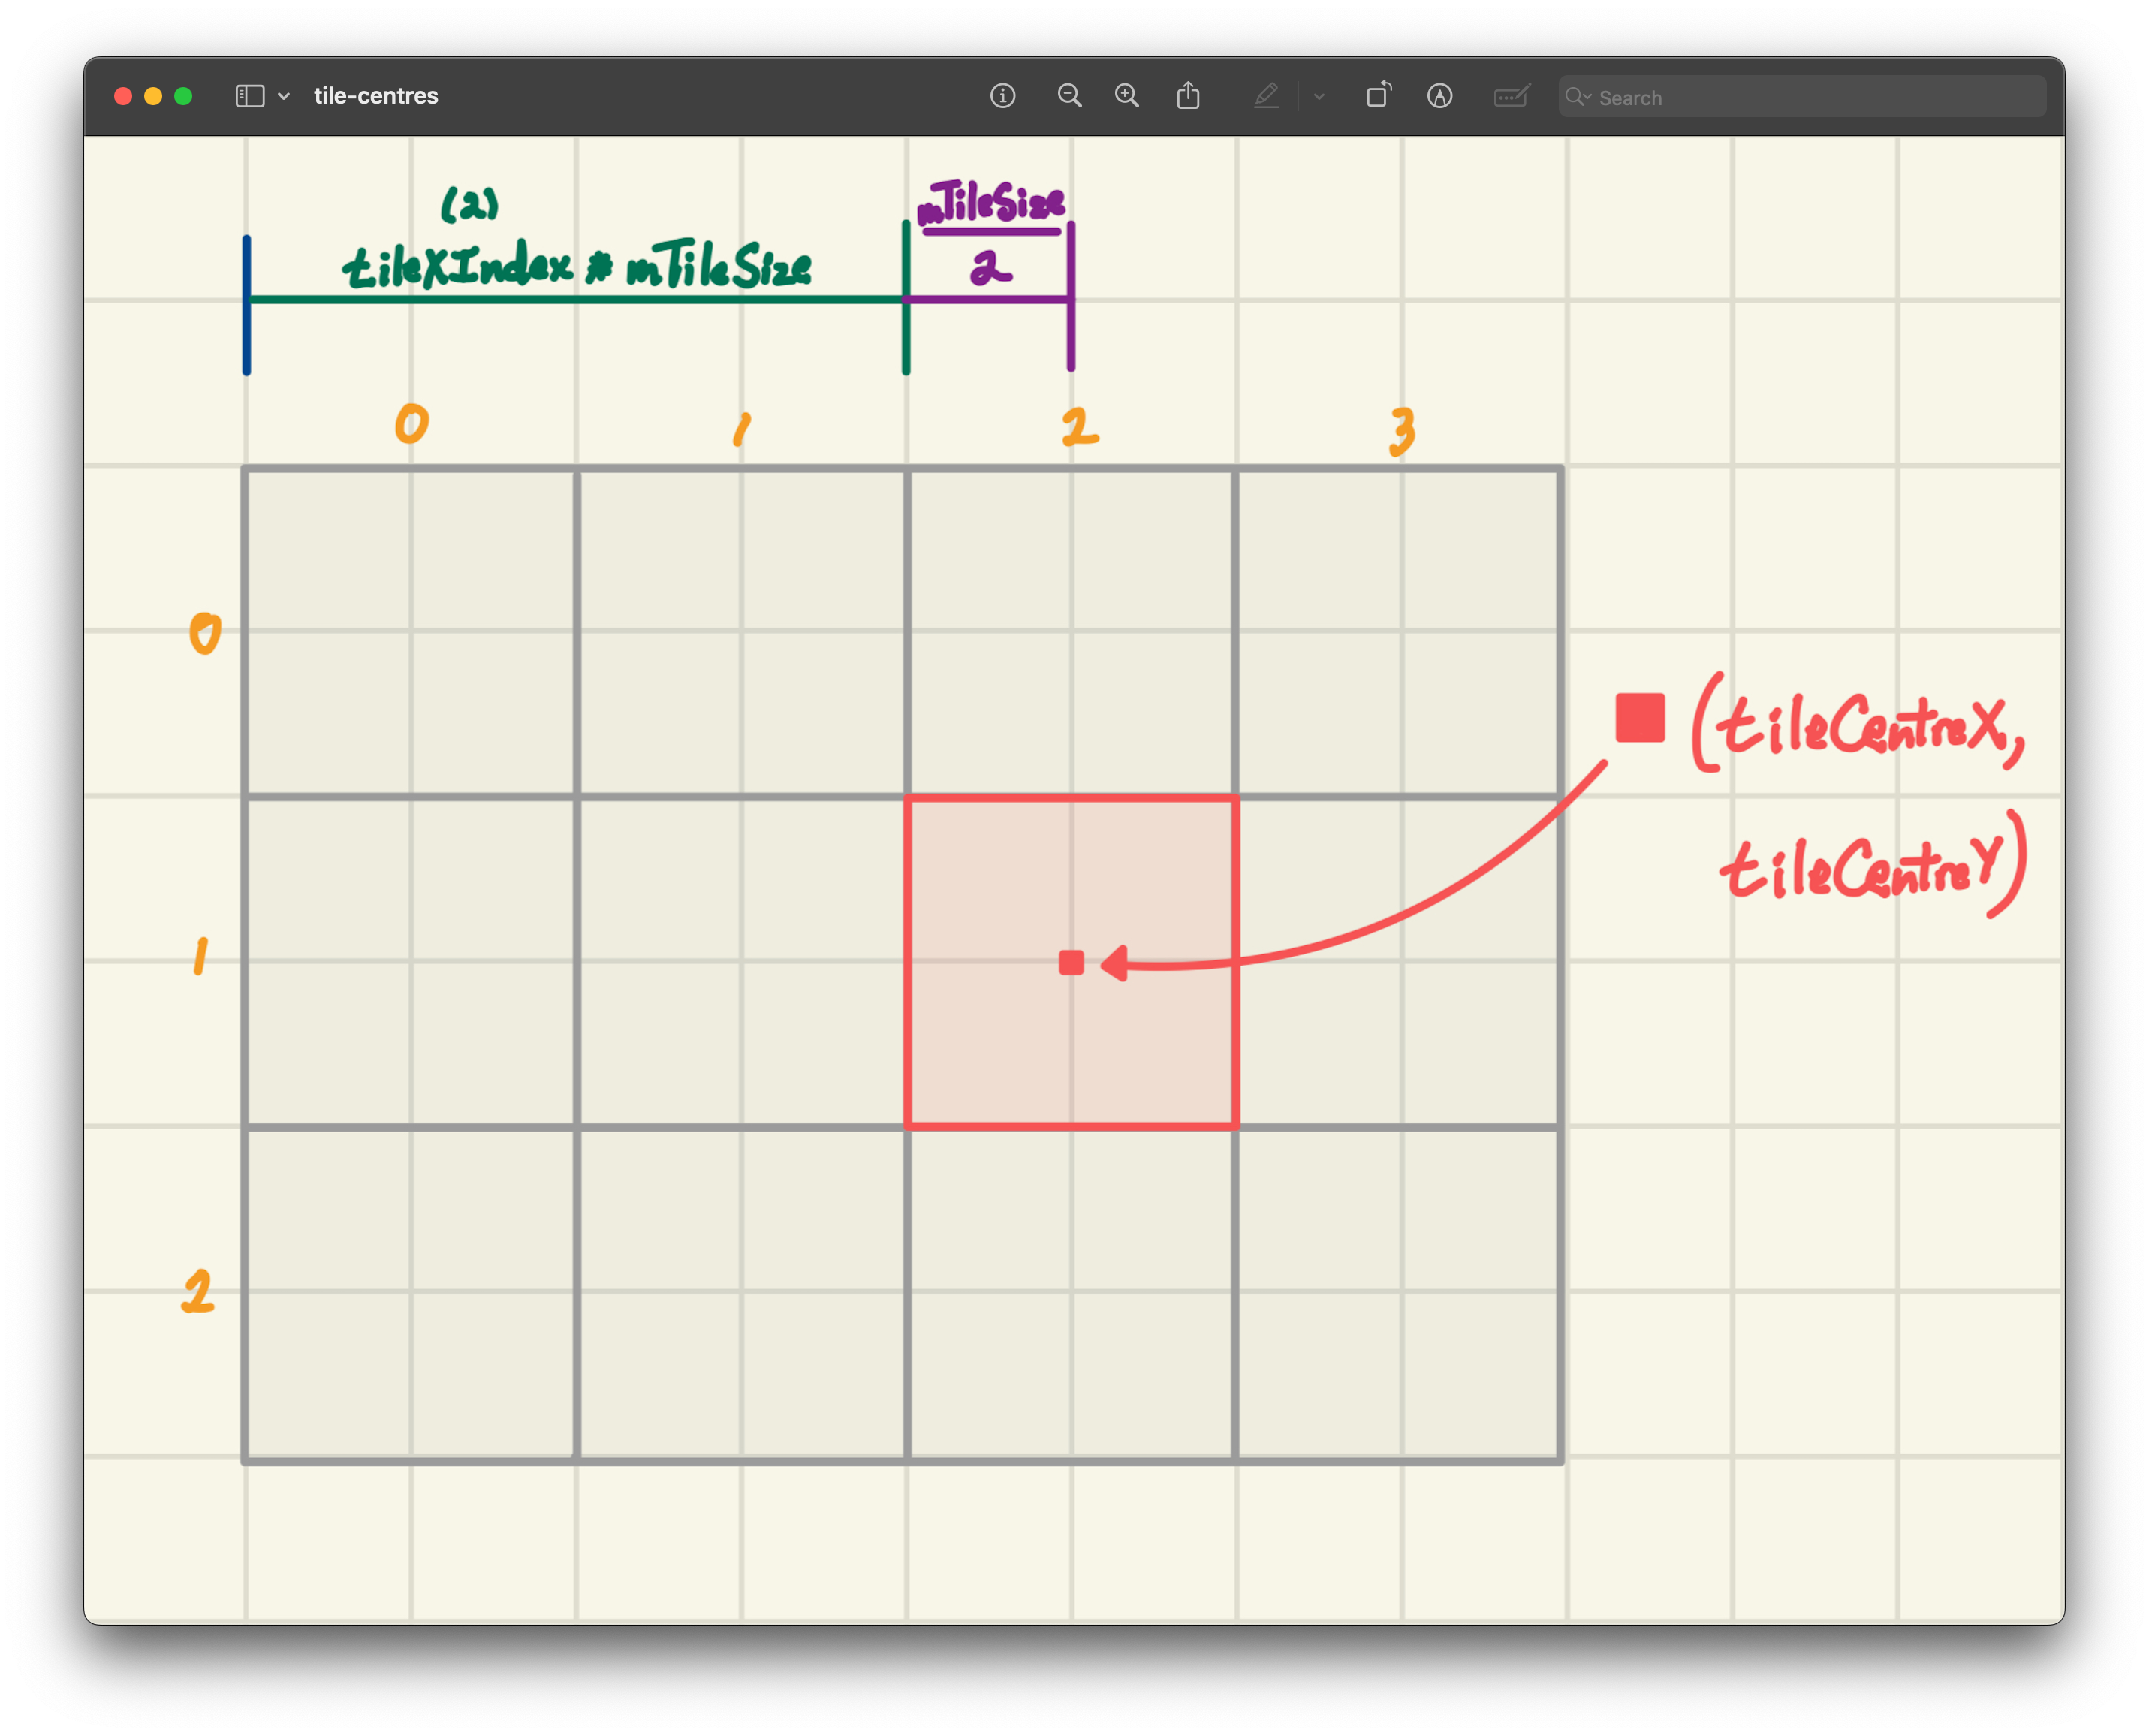 tile-centres
Search
(2)
tileXIndex * mTileSize
mTileSize
2
0 1 2 3
0
(tileCentreX,
tileCentreY)
1
2